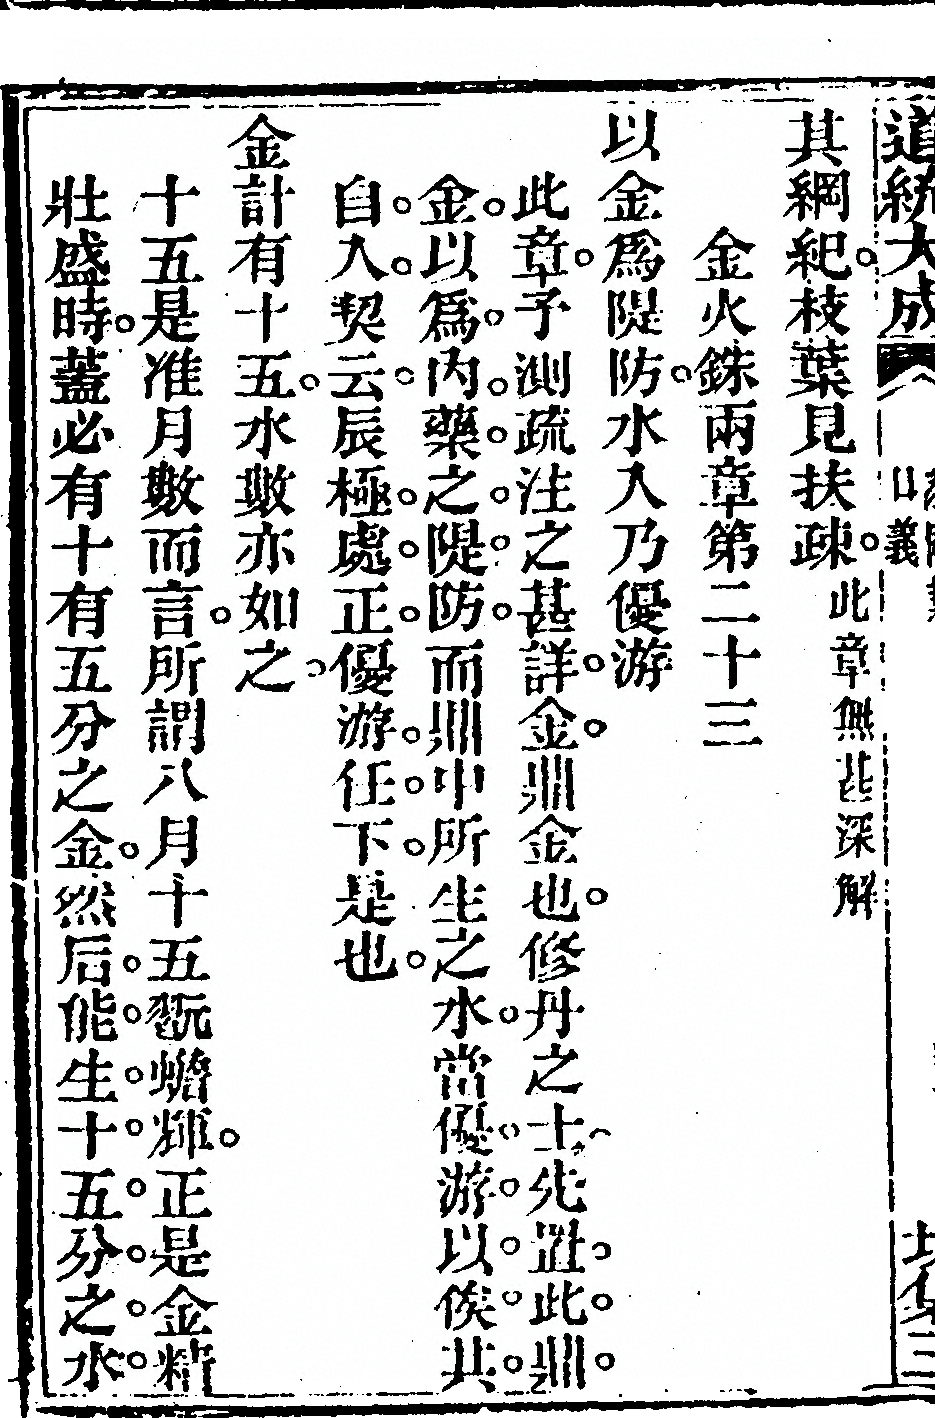 道統大成
口義
其綱紀。枝葉見扶疎。此章無甚深解
金火銖兩章第二十三
以金爲隄防。水入乃優游
此章。予測疏注之甚詳。金。鼎金也。修丹之士。先置。此。鼎。
金。以爲。內。藥。之。隄。防。而鼎中所生之水。當優。游。以。俟。其。
自。入。契云。辰極。處。正。優游。任。下。是也。
金計有十五。水數亦如之。
十五是准月數而言。所謂八月十五翫蟾輝。正是金精
壯盛時。蓋必有十有五分之金。然后。能。生。十。五。分。之。水。